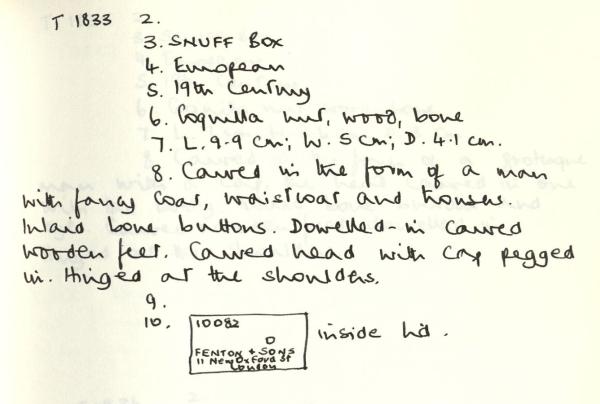 T 1833 2.
3. SNUFF BOX
4. European
5. 19th Century
6. Coquilla nut, wood, bone
7. L. 9.9 cm; W. 5 cm; D. 4.1 cm.
8. Carved in the form of a man
with fancy coat, waistcoat and trousers.
Inlaid bone buttons. Dowelled-in carved
wooden feet. Carved head with cap pegged
in. Hinged at the shoulders.
9.
10. 10082
D
FENTON & SONS
11 New Oxford St
London
inside lid.